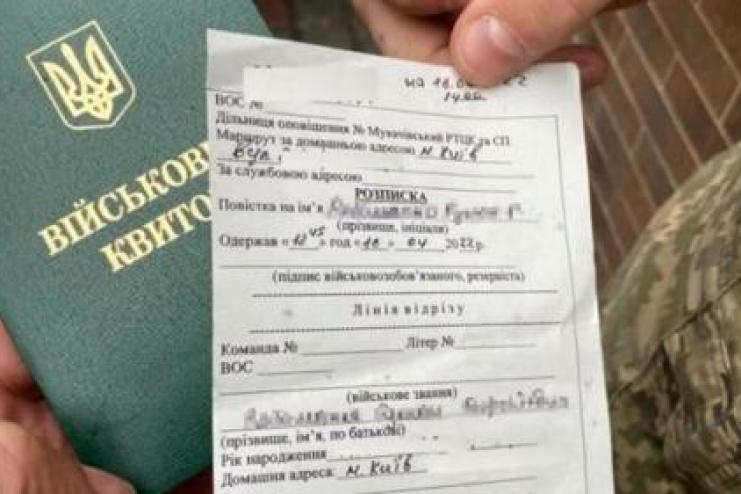 ВІЙСЬКОВ
КВИТО
на 18.0
14.00
ВОС №
Дільниця оповіщення № Мукачівський РТЦК та СП
Маршрут за домашньою адресою м. Київ
вул.
За службовою адресою
РОЗПИСКА
Повістка на ім'я
(прізвище, ініціали)
Одержав «12⁴⁵» год «18» 04 2022 р.
(підпис військовозобов'язаного, резервіста)
Лінія відрізу
Команда № Літер №
ВОС
(військове звання)
(прізвище, ім'я, по батькові)
Рік народження
Домашня адреса: м. Київ